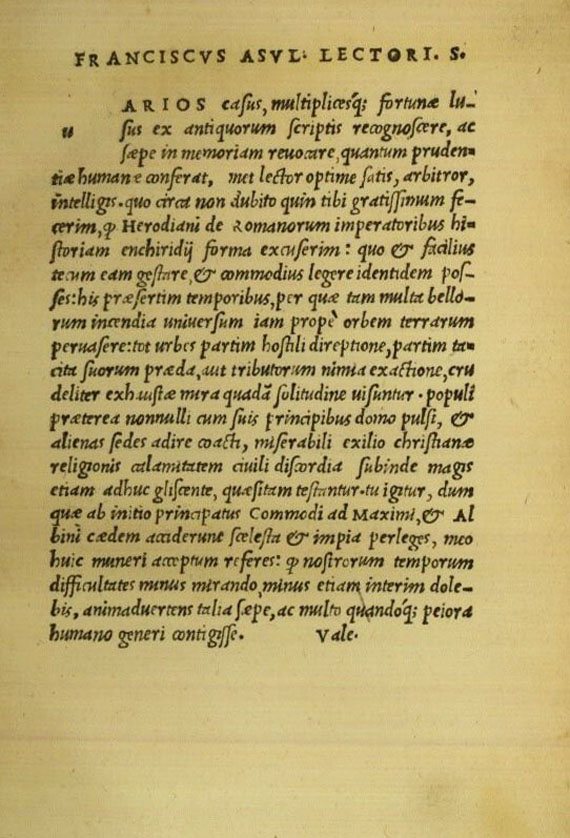 FRANCISCVS ASVL. LECTORI. S.
u ARIOS casus, multiplicesq́; fortunæ lu-
sus ex antiquorum scriptis recognoscere, ac
sæpe in memoriam reuocare, quantum pruden-
tiæ humanæ conferat, met lector optime satis, arbitror,
intelligis. quo circa non dubito quin tibi gratissimum fe-
cerim, ꝙ Herodiani de Romanorum imperatoribus hi-
storiam enchiridij forma excuserim: quo & facilius
tecum eam gestare, & commodius legere identidem pos-
ses: his præsertim temporibus, per quæ tam multa bello-
rum incendia uniuersum iam propè orbem terrarum
peruasere: tot urbes partim hostili direptione, partim ta-
cita suorum præda, aut tributorum nimia exactione, cru
deliter exhaustæ mira quadã solitudine uisuntur. populi
præterea nonnulli cum suis principibus domo pulsi, &
alienas sedes adire coacti, miserabili exilio christianæ
religionis calamitatem ciuili discordia subinde magis
etiam adhuc gliscente, quæsitam testantur. tu igitur, dum
quæ ab initio principatus Commodi ad Maximi, & Al
bini cædem acciderunt scelesta & impia perleges, meo
huic muneri acceptum referes: ꝙ nostrorum temporum
difficultates minus mirando, minus etiam interim dole-
bis, animaduertens talia sæpe, ac multo quandoq́; peiora
humano generi contigisse. Vale.